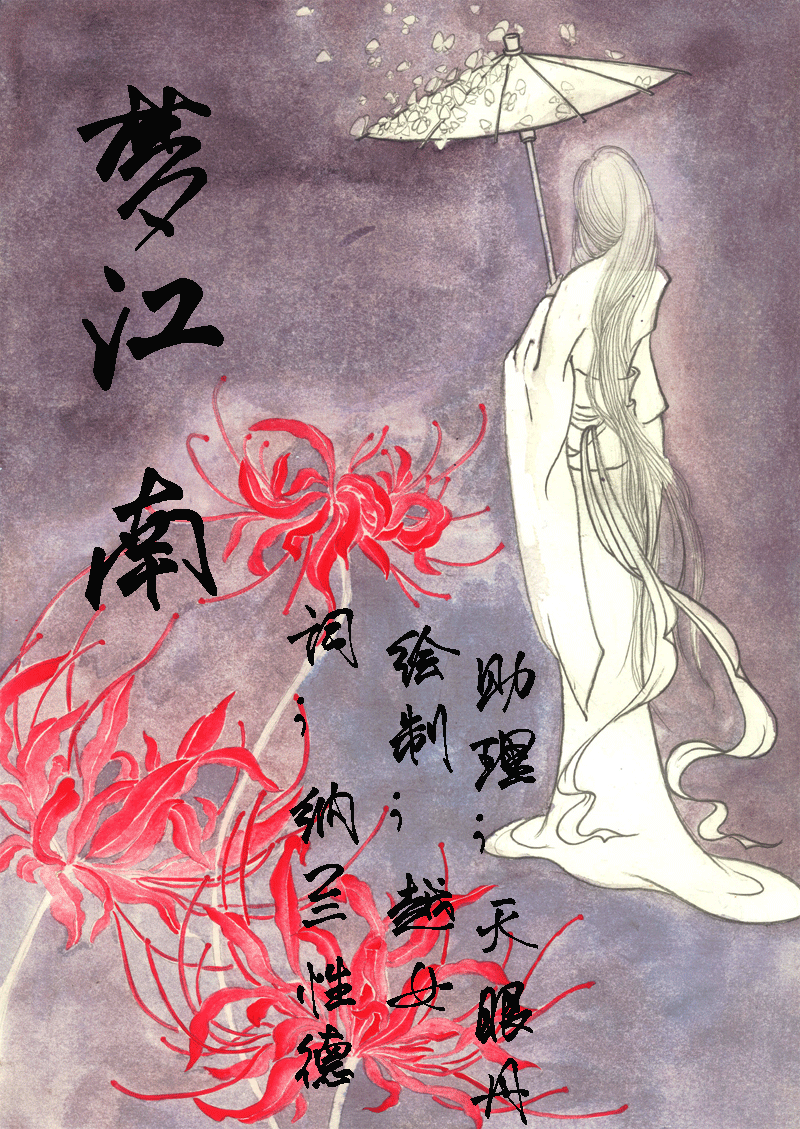 梦江南
词；纳兰性德
绘制；越女
助理；天眼丹